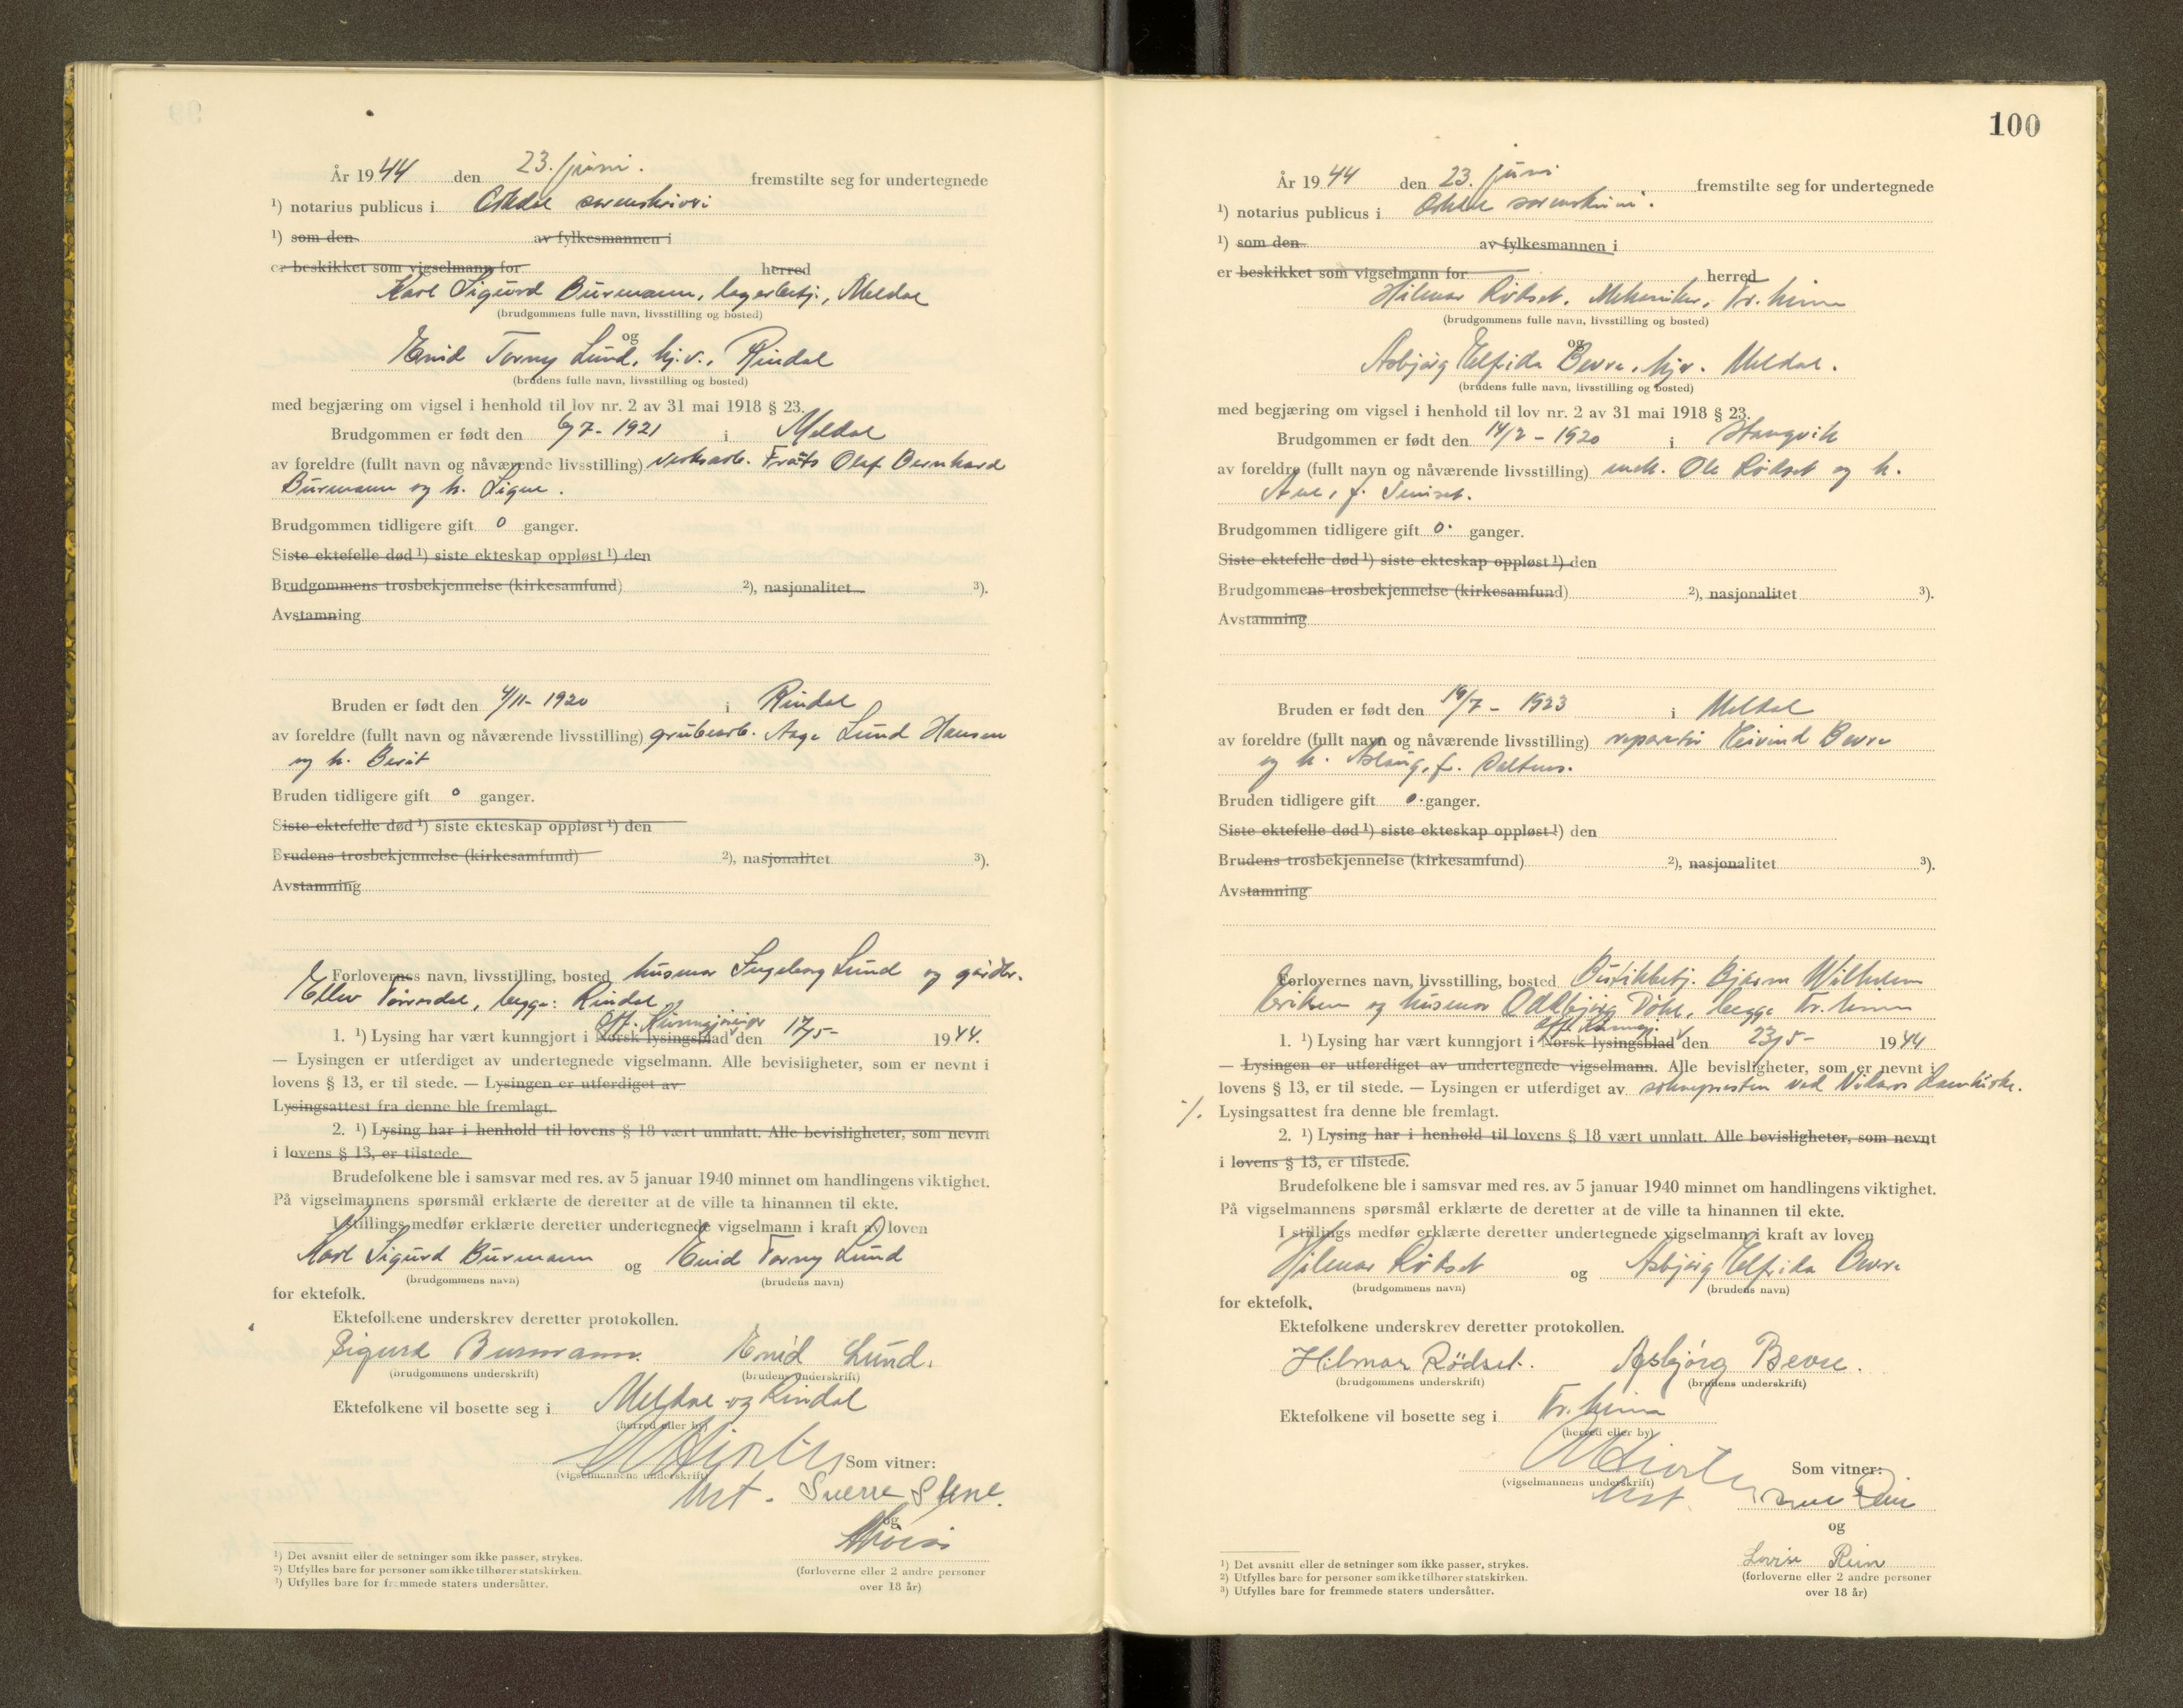 År 1944 den 23. juni. fremstilte seg for undertegnede
¹) notarius publicus i Orkdal sorenskriveri
¹) som den av fylkesmannen i
er beskikket som vigselmann for herred
Karl Sigurd Burmann, lagerbetj., Meldal
(brudgommens fulle navn, livsstilling og bosted)
og
Enid Torny Lund, hj.v., Rindal
(brudens fulle navn, livsstilling og bosted)
med begjæring om vigsel i henhold til lov nr. 2 av 31 mai 1918 § 23.
Brudgommen er født den 6/7- 1921 i Meldal
av foreldre (fullt navn og nåværende livsstilling) verksarb. Olaf Bernhard
Burmann og h. Signe.
Brudgommen tidligere gift 0 ganger.
Siste ektefelle død ¹) siste ekteskap oppløst ¹) den
Brudgommens trosbekjennelse (kirkesamfund) ²), nasjonalitet ³).
Avstamning
Bruden er født den 4/11- 1920 i Rindal
av foreldre (fullt navn og nåværende livsstilling) grubearb. Aage Lund Hansen
og h. Berit
Bruden tidligere gift 0 ganger.
Siste ektefelle død ¹) siste ekteskap oppløst ¹) den
Brudens trosbekjennelse (kirkesamfund) ²), nasjonalitet ³).
Avstamning
Forlovernes navn, livsstilling, bosted husmor Ingeborg Lund og gårdbr.
Ellev Tørresdal, begge: Rindal
off. Kunngjøringer
1. ¹) Lysing har vært kunngjort i Norsk lysingsblad den 17/5- 1944.
— Lysingen er utferdiget av undertegnede vigselmann. Alle bevisligheter, som er nevnt i
lovens § 13, er til stede. — Lysingen er utferdiget av
Lysingsattest fra denne ble fremlagt.
2. ¹) Lysing har i henhold til lovens § 18 vært unnlatt. Alle bevisligheter, som nevnt
i lovens § 13, er tilstede.
Brudefolkene ble i samsvar med res. av 5 januar 1940 minnet om handlingens viktighet.
På vigselmannens spørsmål erklærte de deretter at de ville ta hinannen til ekte.
I stillings medfør erklærte deretter undertegnede vigselmann i kraft av loven
Karl Sigurd Burmann og Enid Torny Lund
(brudgommens navn) (brudens navn)
for ektefolk.
Ektefolkene underskrev deretter protokollen.
Sigurd Burmann. Enid Lund.
(brudgommens underskrift) (brudens underskrift)
Ektefolkene vil bosette seg i Meldal og Rindal
(herred eller by)
Som vitner:
(vigselmannens underskrift)
Sverre Stene.
og
¹) Det avsnitt eller de setninger som ikke passer, strykes.
²) Utfylles bare for personer som ikke tilhører statskirken.
³) Utfylles bare for fremmede staters undersåtter.
(forloverne eller 2 andre personer
over 18 år)
100
År 1944 den 23. juni fremstilte seg for undertegnede
¹) notarius publicus i Orkdal sorenskriveri.
¹) som den av fylkesmannen i
er beskikket som vigselmann for herred
Hilmar Rødset. Mekaniker, Tr.heim
(brudgommens fulle navn, livsstilling og bosted)
og
Asbjørg Elfrida Bevre, hjv. Meldal.
(brudens fulle navn, livsstilling og bosted)
med begjæring om vigsel i henhold til lov nr. 2 av 31 mai 1918 § 23.
Brudgommen er født den 14/2 - 1920 i Stangvik
av foreldre (fullt navn og nåværende livsstilling) Ole Rødset og h.
Ane, f.
Brudgommen tidligere gift 0. ganger.
Siste ektefelle død ¹) siste ekteskap oppløst ¹) den
Brudgommens trosbekjennelse (kirkesamfund) ²), nasjonalitet ³).
Avstamning
Bruden er født den 19/7 - 1923 i Meldal
av foreldre (fullt navn og nåværende livsstilling) reparatør Eivind Bevre
og h. Aslaug, f.
Bruden tidligere gift 0. ganger.
Siste ektefelle død ¹) siste ekteskap oppløst ¹) den
Brudens trosbekjennelse (kirkesamfund) ²), nasjonalitet ³).
Avstamning
Forlovernes navn, livsstilling, bosted Butikkbetj. Bjarne Wilhelm
Eriksen og husmor Oddbjørg begge Tr.heim
off. Kunngj.
1. ¹) Lysing har vært kunngjort i Norsk lysingsblad den 23/5- 1944
— Lysingen er utferdiget av undertegnede vigselmann. Alle bevisligheter, som er nevnt i
lovens § 13, er til stede. — Lysingen er utferdiget av soknepresten ved
Lysingsattest fra denne ble fremlagt.
2. ¹) Lysing har i henhold til lovens § 18 vært unnlatt. Alle bevisligheter, som nevnt
i lovens § 13, er tilstede.
Brudefolkene ble i samsvar med res. av 5 januar 1940 minnet om handlingens viktighet.
På vigselmannens spørsmål erklærte de deretter at de ville ta hinannen til ekte.
I stillings medfør erklærte deretter undertegnede vigselmann i kraft av loven
Hilmar Rødset og Asbjørg Elfrida Bevre
(brudgommens navn) (brudens navn)
for ektefolk.
Ektefolkene underskrev deretter protokollen.
Hilmar Rödset. Asbjörg Bevre.
(brudgommens underskrift) (brudens underskrift)
Ektefolkene vil bosette seg i Tr.heim
(herred eller by)
Som vitner:
(vigselmannens underskrift)
og
Lovise Rein
¹) Det avsnitt eller de setninger som ikke passer, strykes.
²) Utfylles bare for personer som ikke tilhører statskirken.
³) Utfylles bare for fremmede staters undersåtter.
(forloverne eller 2 andre personer
over 18 år)